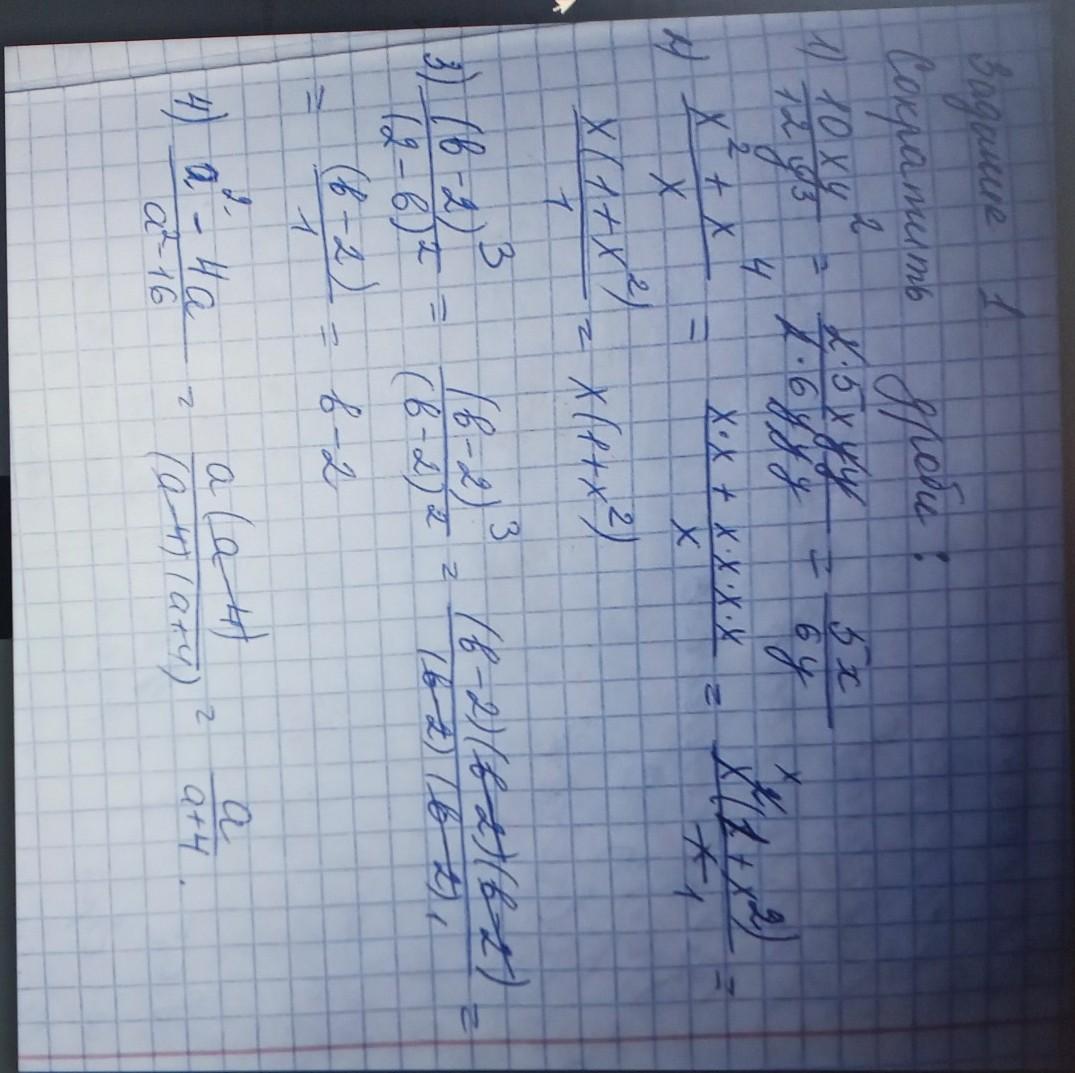 Задание 1
Сократить дроби:
1) 10xy²/12y³ = 2·5xyy/2·6yyy = 5x/6y
2) x²+x⁴/x = x·x+x·x·x·x/x = x²(1+x²)/x =
x(1+x²)/1 = x(1+x²)
3) (в-2)³/(2-в)² = (в-2)³/(в-2)² = (в-2)(в-2)(в-2)/(в-2)(в-2) =
= (в-2)/1 = в-2
4) a²-4a/a²-16 = a(a-4)/(a-4)(a+4) = a/a+4.